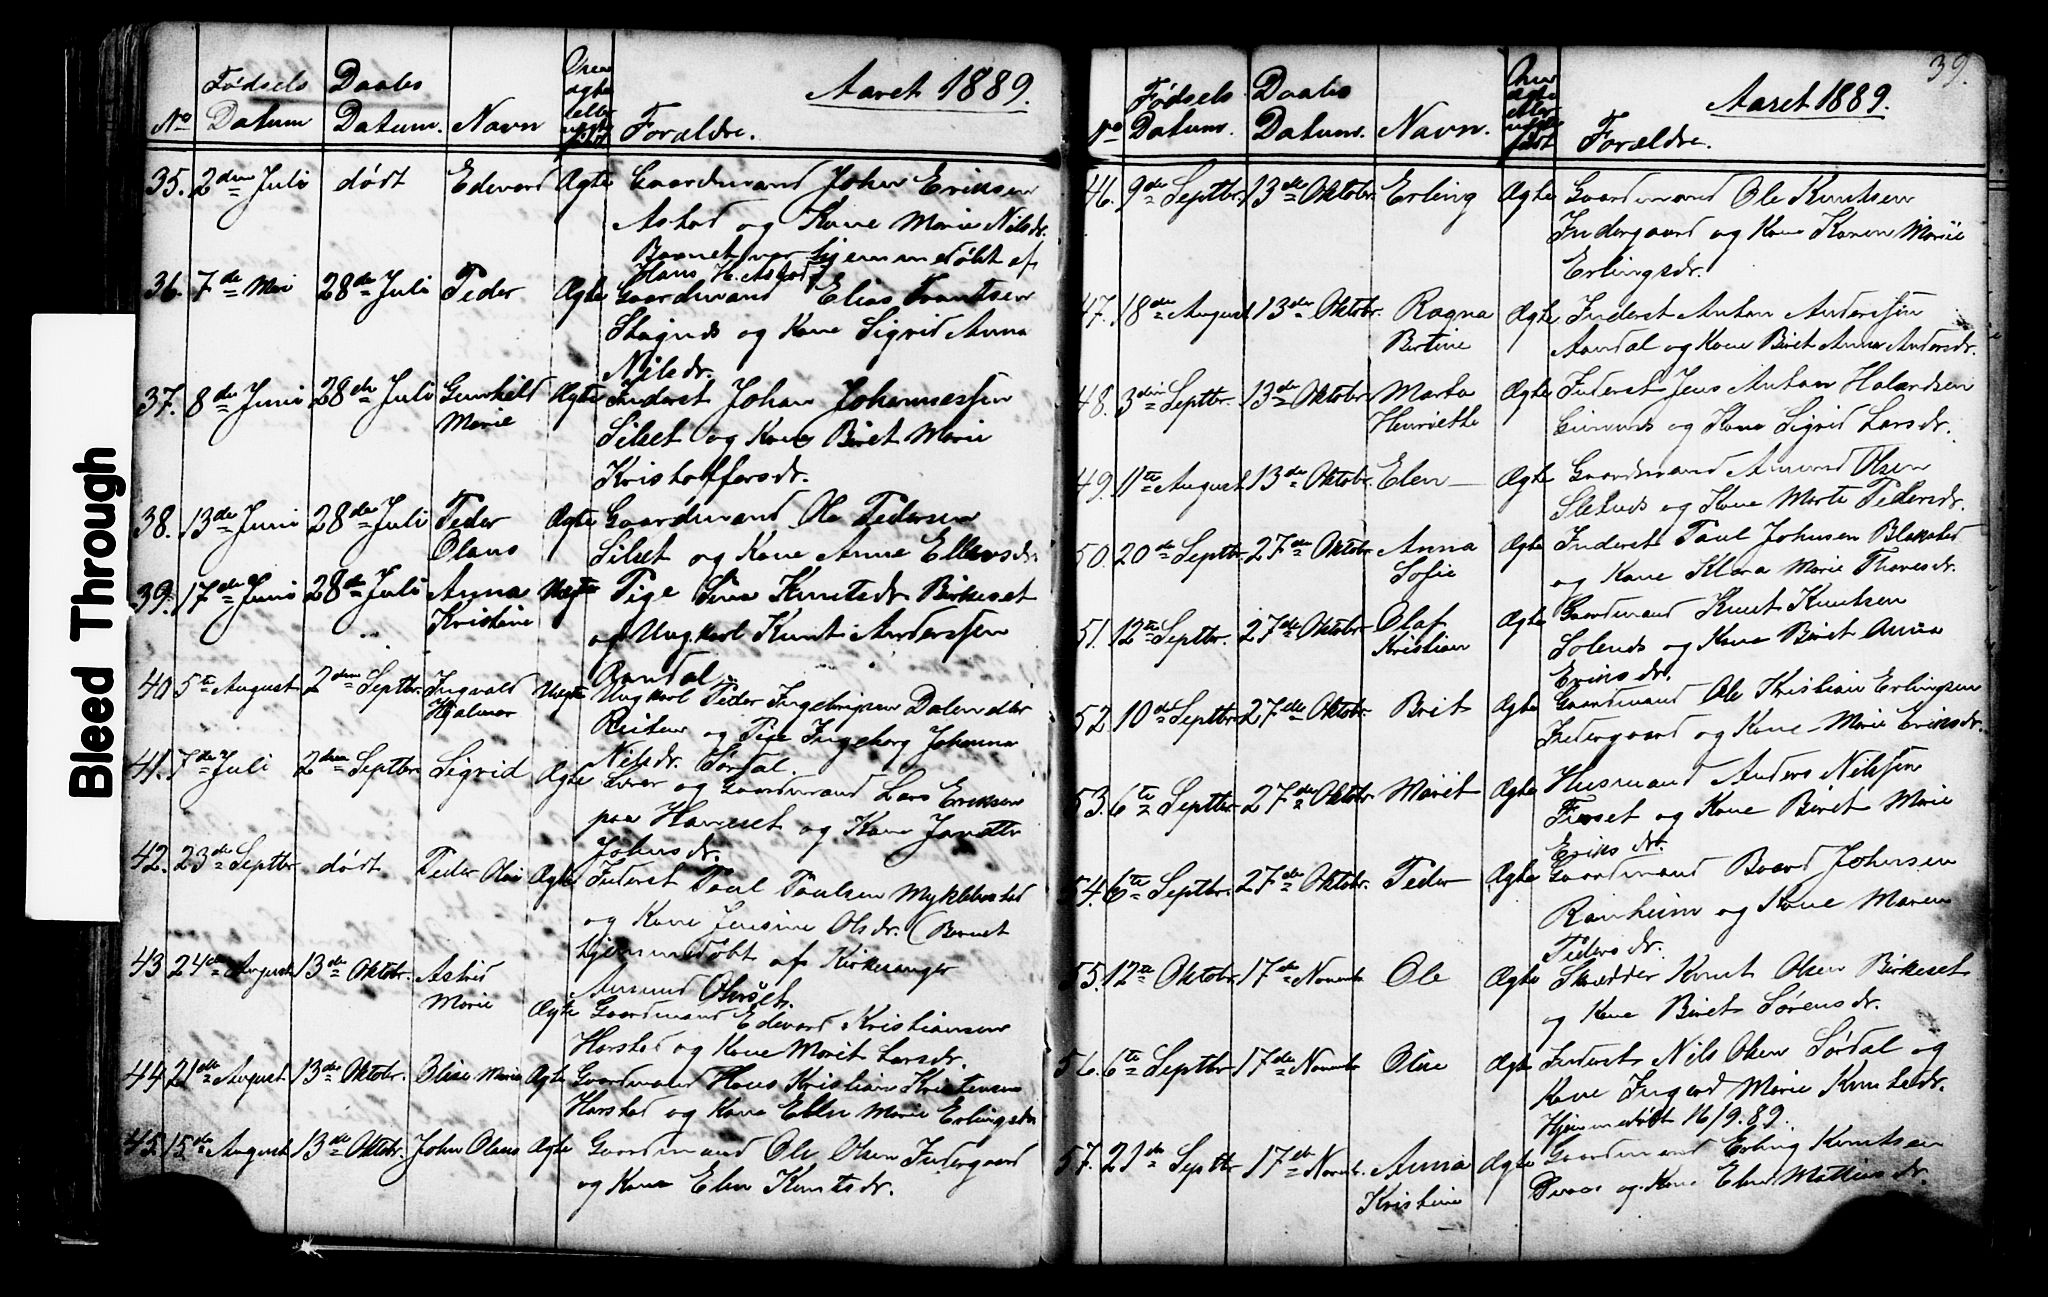 Bleed Through
Aaret 1889.
No
Fødsels Datum
Daabs Datum.
Navn
Om ægte eller uægte født
Forældre.
35. 2den Juli dødt Edevard Ægte Gaardmand John Eriksen
Astad og Kone Marie Nilsdr.
Barnet var hjemmedøbt af
Hans H. Astad
36. 7de Mai 28de Juli Peder Ægte Gaardmand Elias Frantsen
og Kone Sigrid Anna
Nilsdr.
37. 8de Juni 28de Juli Gunhild Ægte Inderst Johan Johannessen
Marie Silset og Kone Beret Marie
Kristoffersdr.
38. 13de Juni 28de Juli Peder Ægte Gaardmand Ole Pedersen
Olaus Silset og Kone Anne Ellevsdr.
39. 17de Juni 28de Juli Anna Uægte Pige Knutsdr. Birkeset
Kristine og Ungkarl Knut Anderssen
Aandal.
40. 5te August 2den Septbr. Ingvald Uægte Ungkarl Peder Ingebrigtsen Dalen eller
Hjalmar og Pige Ingeborg Johanna
Nilsdr. Sørdal.
41. 7de Juli 2den Septbr. Sigrid Ægte og Gaardmand Lars Eriksen
paa og Kone
Johnsdr.
42. 23de Septbr dødt Peder Ægte Inderst Paul Paulsen Myklebostad
og Kone Jensine Olsdr. (Barnet
hjemmedøbt af Kirkesanger
Amund
43. 24de August 13de Oktobr. Astrid
Marie Ægte Gaardmand Edevard Kristiansen
Harstad og Kone Marit Larsdr.
44. 21de August 13de Oktobr. Oline Marie Ægte Gaardmand Hans Kristian Kristensen
Harstad og Kone Ellen Marie Erlingsdr.
45. 15de August 13de Oktobr. John Olaus Ægte Gaardmand Ole Olsen Indergaard
og Kone Elen Knutsdr.
39.
Aaret 1889.
No
Fødsels Datum.
Daabs Datum.
Navn.
Om ægte eller uægte født
Forældre.
46. 9de Septbr. 13de Oktobr. Erling Ægte Gaardmand Ole Knutsen
Indergaard og Kone Karen Marie
Erlingsdr.
47. 18de August 13de Oktobr. Ragna Ægte Inderst Anton Anderssen
Bertine Aandal og Kone Berit Anna Andersdr.
48. 3die Septbr. 13de Oktobr. Marta Ægte Inderst Jens Anton
Henriette og Kone Sigrid Larsdr.
49. 11te August 13de Oktobr. Elen Ægte Gaardmand Amund Olsen
og Kone Marte Pedersdr.
50. 20de Septbr. 27de Oktobr. Anna Ægte Inderst Paul Johnsen Blakstad
Sofie og Kone Klara Marie Thoresdr.
51. 12te Septbr. 27de Oktobr. Olaf Ægte Gaardmand Knut Knutsen
Kristian Solends og Kone Beret Anna
Eriksdr.
52. 10de Septbr. 27de Oktobr. Brit Ægte Gaardmand Ole Kristian Erlingsen
Indergaard og Kone Marie Eriksdr.
53. 6te Septbr. 27de Oktobr. Marit Ægte Husmand Anders Nilssen
Firset og Kone Beret Marie
Eriksdr.
54. 6te Septbr. 27de Oktobr. Peder Ægte Gaardmand Baard Johnsen
Ranheim og Kone Maren
Pedersdr.
55. 12te Oktobr. 17de Novembr Ole Ægte Skrædder Knut Olsen Birkeset
og Kone Beret Sørensdr.
56. 6te Septbr. 17de Novembr Oline Ægte Inderst Nils Olsen Sørdal og
Kone Ingerd Marie Knutsdr.
Hjemmedøbt 16/9.89.
57. 21de Septbr 17de Novbr. Anna Ægte Gaardmand Erling Knutsen
Kristine og Kone Elen Mathiasdr.